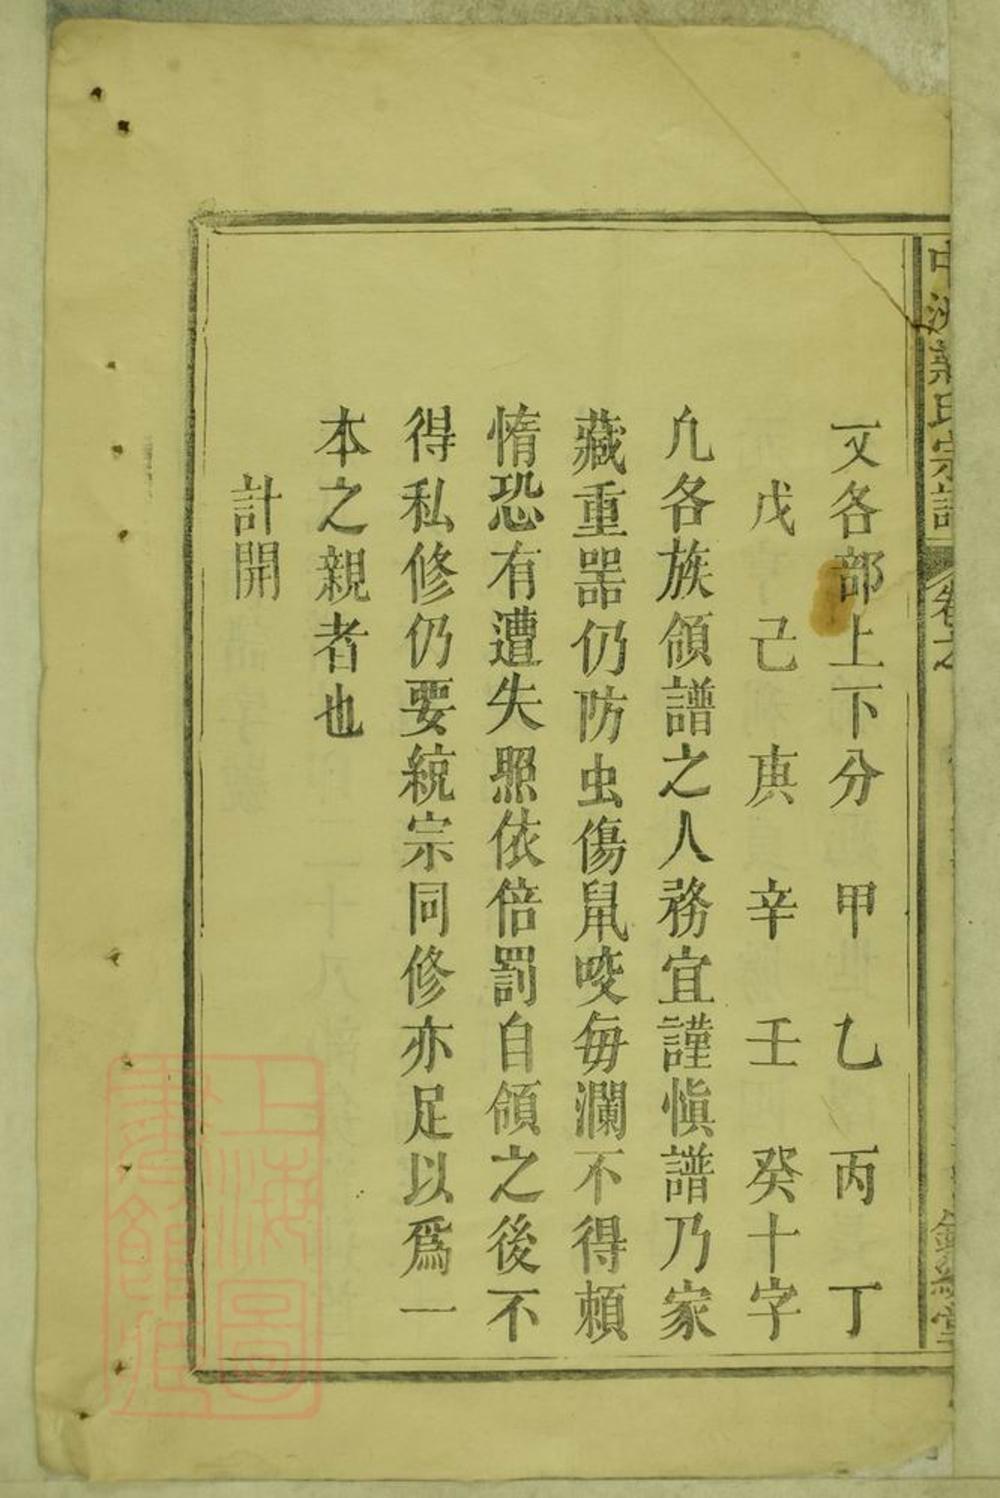 氏宗譜 卷之
一又各部上下分甲乙丙丁
戊己庚辛壬癸十字
凢各族領譜之人務宜謹愼譜乃家
藏重噐仍防虫傷鼠咬毎瀾不得頼
惰恐有遭失照依倍罰自領之後不
得私修仍要統宗同修亦足以爲一
本之親者也
計開
上海圖
書館藏